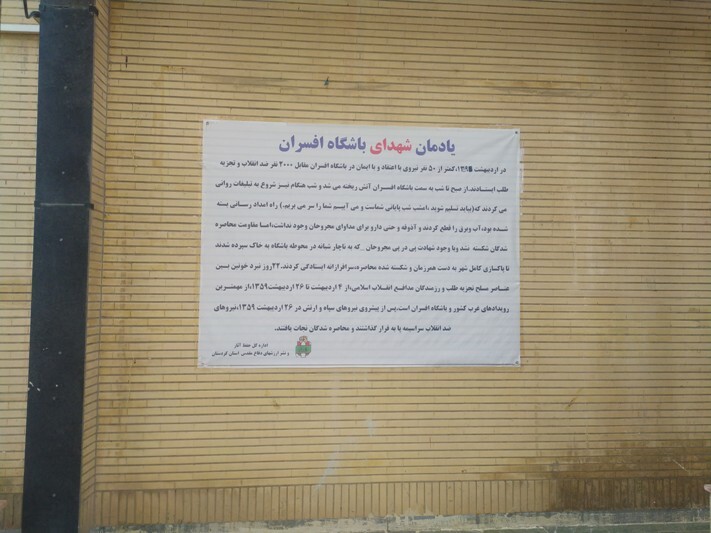 یادمان شهدای باشگاه افسران
در اردیبهشت ۱۳۵۹،کمتر از ۵۰ نفر نیروی با اعتقاد و با ایمان در باشگاه افسران مقابل ۲۰۰۰ نفر ضد انقلاب و تجزیه
طلب ایستادند.از صبح تا شب به سمت باشگاه افسران آتش ریخته می شد و شب هنگام نیز شروع به تبلیغات روانی
می کردند که(بیاید تسلیم شوید ،امشب شب پایانی شماست و می آییم شما را سر می بریم.) راه امداد رسانی بسته
شده بود،آب وبرق را قطع کردند و آذوقه و حتی دارو برای مداوای مجروحان وجود نداشت،امـا مقاومت محاصره
شدگان شکسته نشد وبا وجود شهادت پی در پی مجروحان که به ناچار شبانه در محوطه باشگاه به خاک سپرده شدند
تا پاکسازی کامل شهر به دست همرزمان و شکسته شده محاصره،سرافرازانه ایستادگی کردند.۲۲روز نبرد خونین بین
عناصر مسلح تجزیه طلب و رزمندگان مدافع انقلاب اسلامی،از ۴ اردیبهشت تا ۲۶ اردیبهشت۱۳۵۹،از مهمترین
رویدادهای غرب کشور و باشگاه افسران است.پس از پیشروی نیروهای سپاه و ارتش در ۲۶ اردیبهشت ۱۳۵۹،نیروهای
ضد انقلاب سراسیمه پا به فرار گذاشتند و محاصره شدگان نجات یافتند.
اداره کل حفظ آثار
و نشر ارزشهای دفاع مقدس استان کردستان